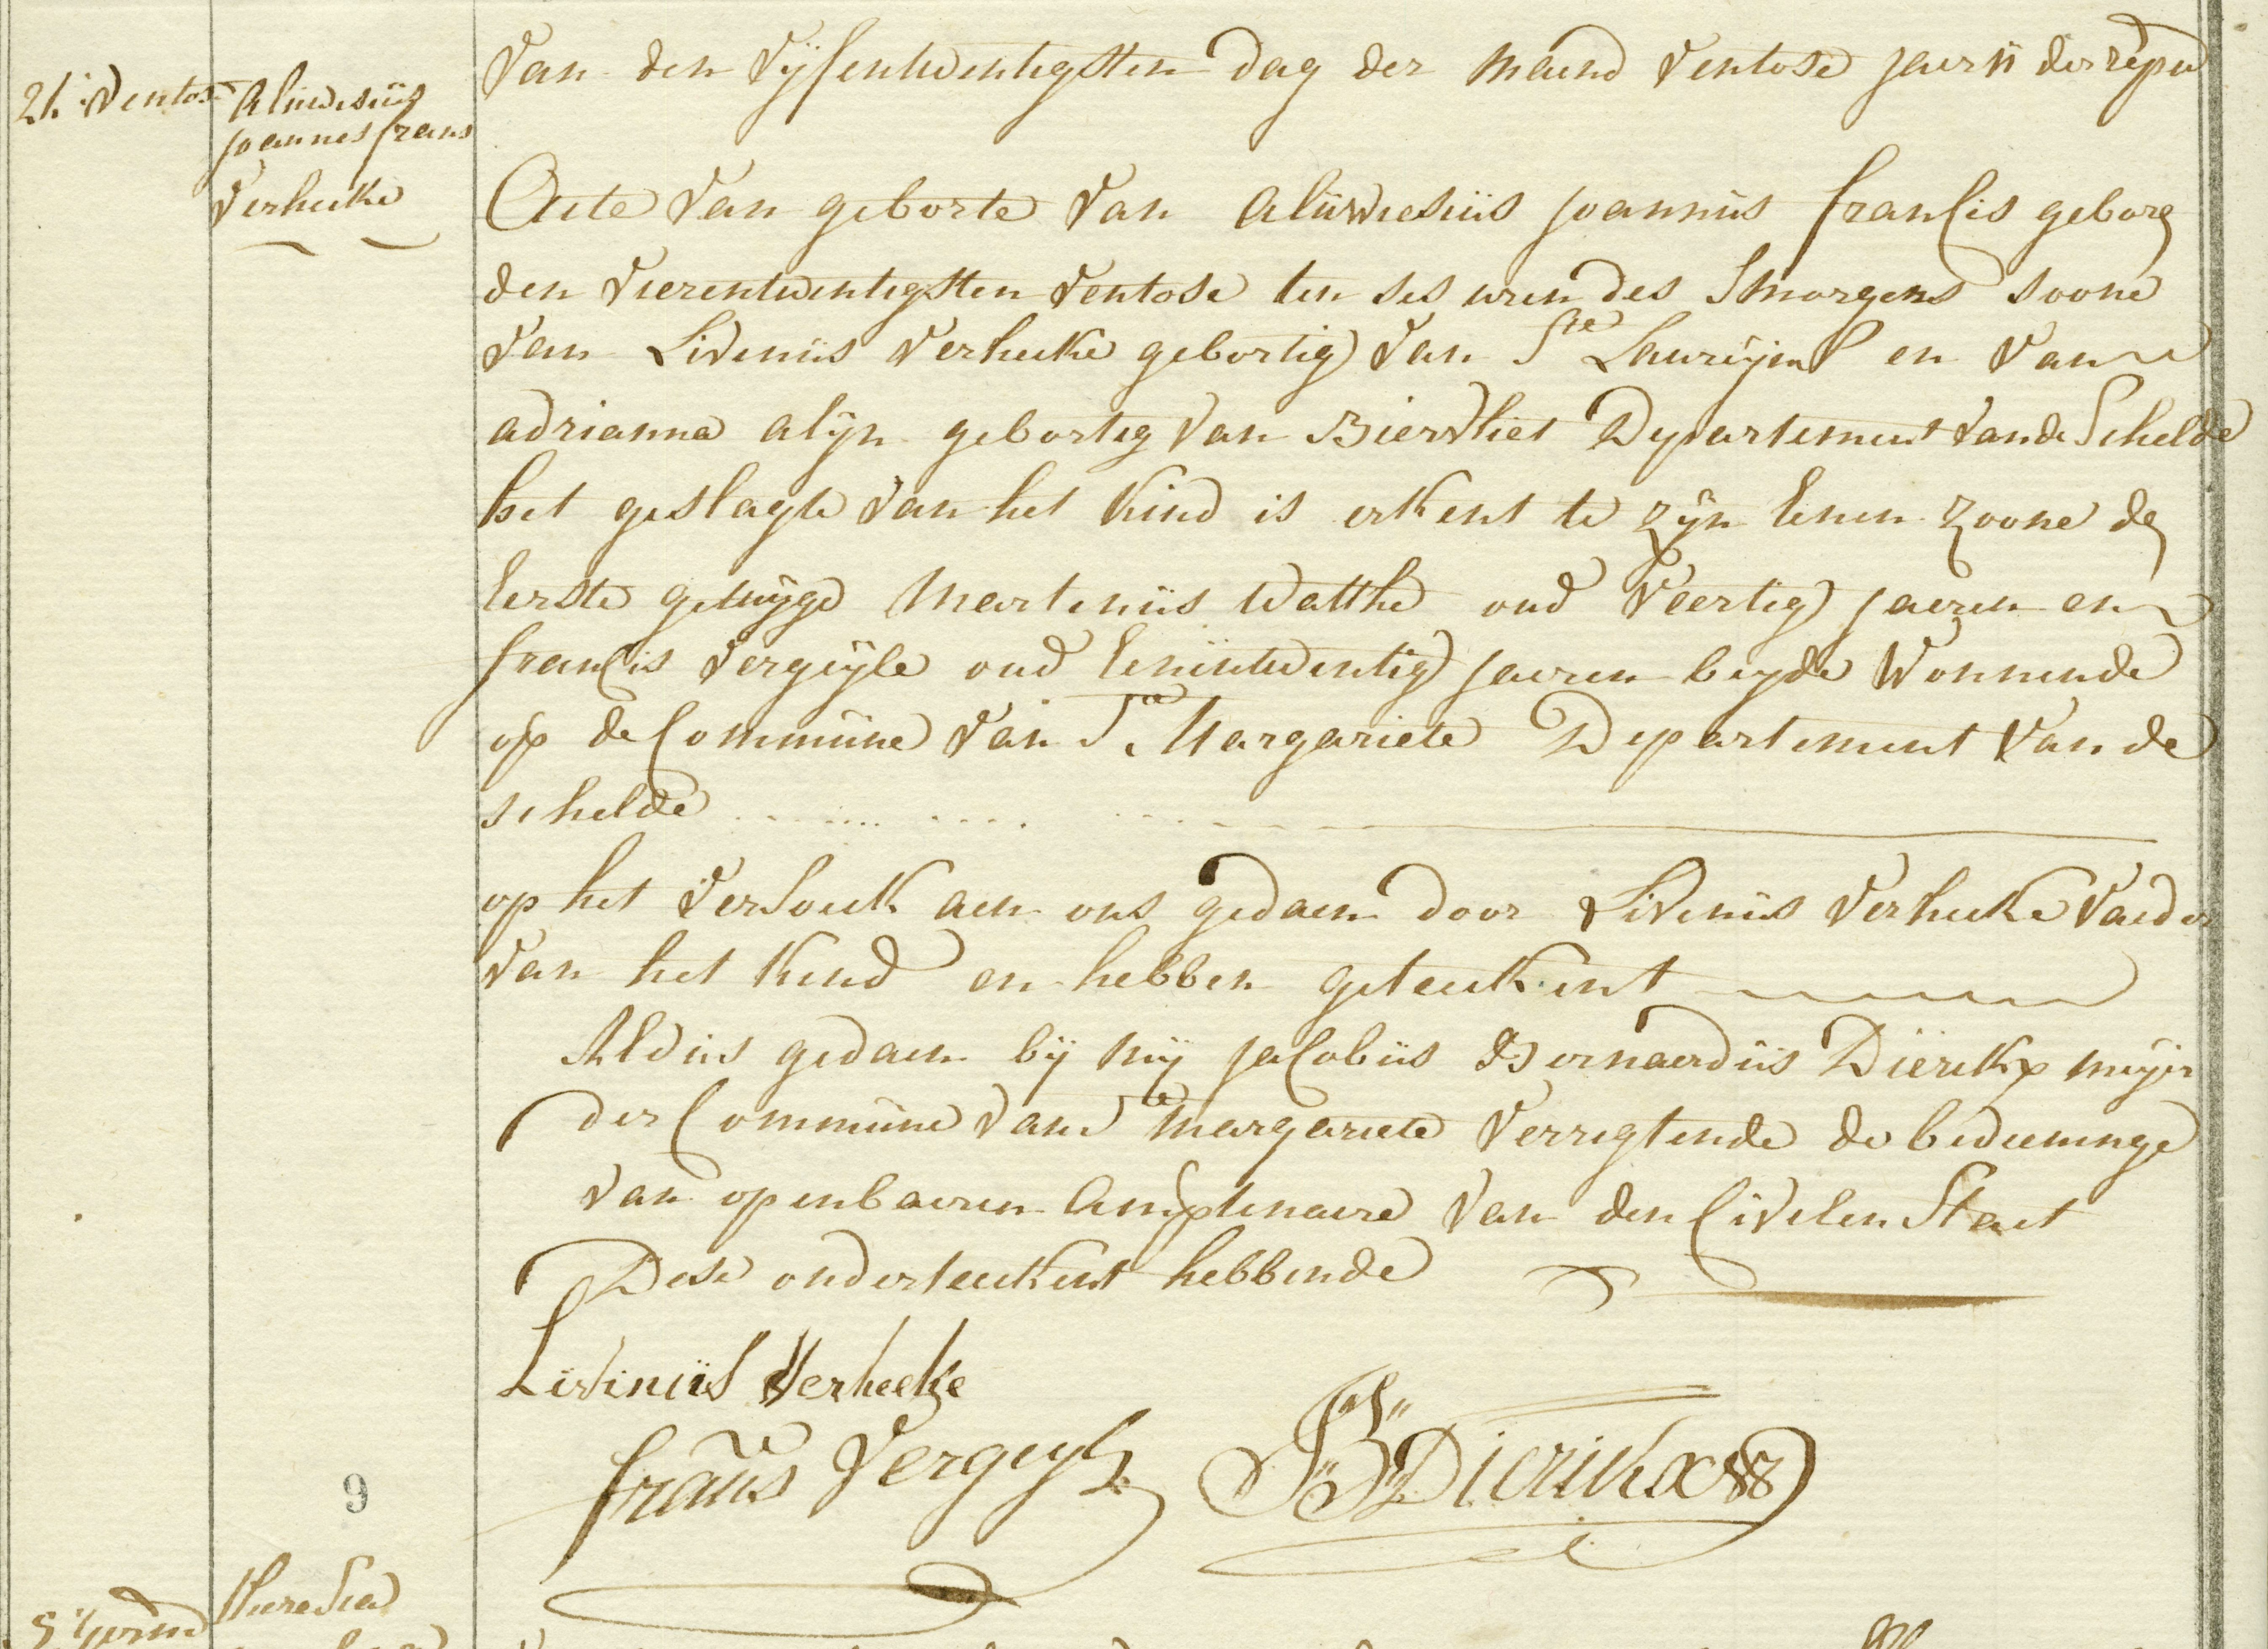 Van den Vijfentwentigsten dag der maend Ventose jaer 11 der repu
24 Ventose
Aluwesius
joannes frans
Verheeke
Acte Van geborte Van Aluwiesius joannus francis geborg
den Vierentwentigsten Ventose ten ses uren des Smorgens soone
Van Livenus Verheeke gebortig Van Ste Laureijns en Van
adrianna alijn gebortig Van Biervliet Departement Van de Schelde
het geslagte Van het Kind is erkent te zijn Eenen zoone de
Eerste getuijge Martenus Watthe oud Veertig jaeren en
francis Vergeijle oud Eenentwentig jaeren beijde Wonnende
op de Commune Van Ste Margariete Departement Van de
schelde
op het Versoeck aen ons gedaen door Livenus Verheeke Vaeder
Van het Kind en hebben geteeckent
Aldus gedaen bij mij jacobus Bernaerdus Dierickx meijer
der Commune Van Ste Margariete Verrigtende de bedieninge
Van openbaeren Amptenaere Van den Civielen Staet
Dese onderteeckent hebbende
Livinius Verheeke
frans Vergeijle JB Dierickx
9
theresia
5 germ